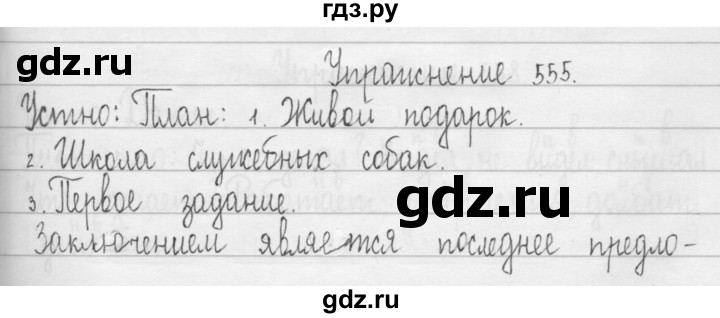 гдз.ру
gdz.ru
Упражнение 555.
Устно: План: 1. Живой подарок.
2. Школа служебных собак.
3. Первое задание.
gdz.ru
Заключением является последнее предло-
gdz.ru